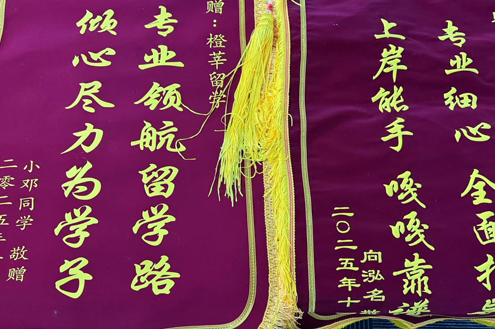 赠：橙莘留学
专业领航留学路
倾心尽力为学子
小邓同学 敬赠
二零二五年
专业细心 全面
上岸能手 嘎嘎靠谱
向泓名
二〇二五年十